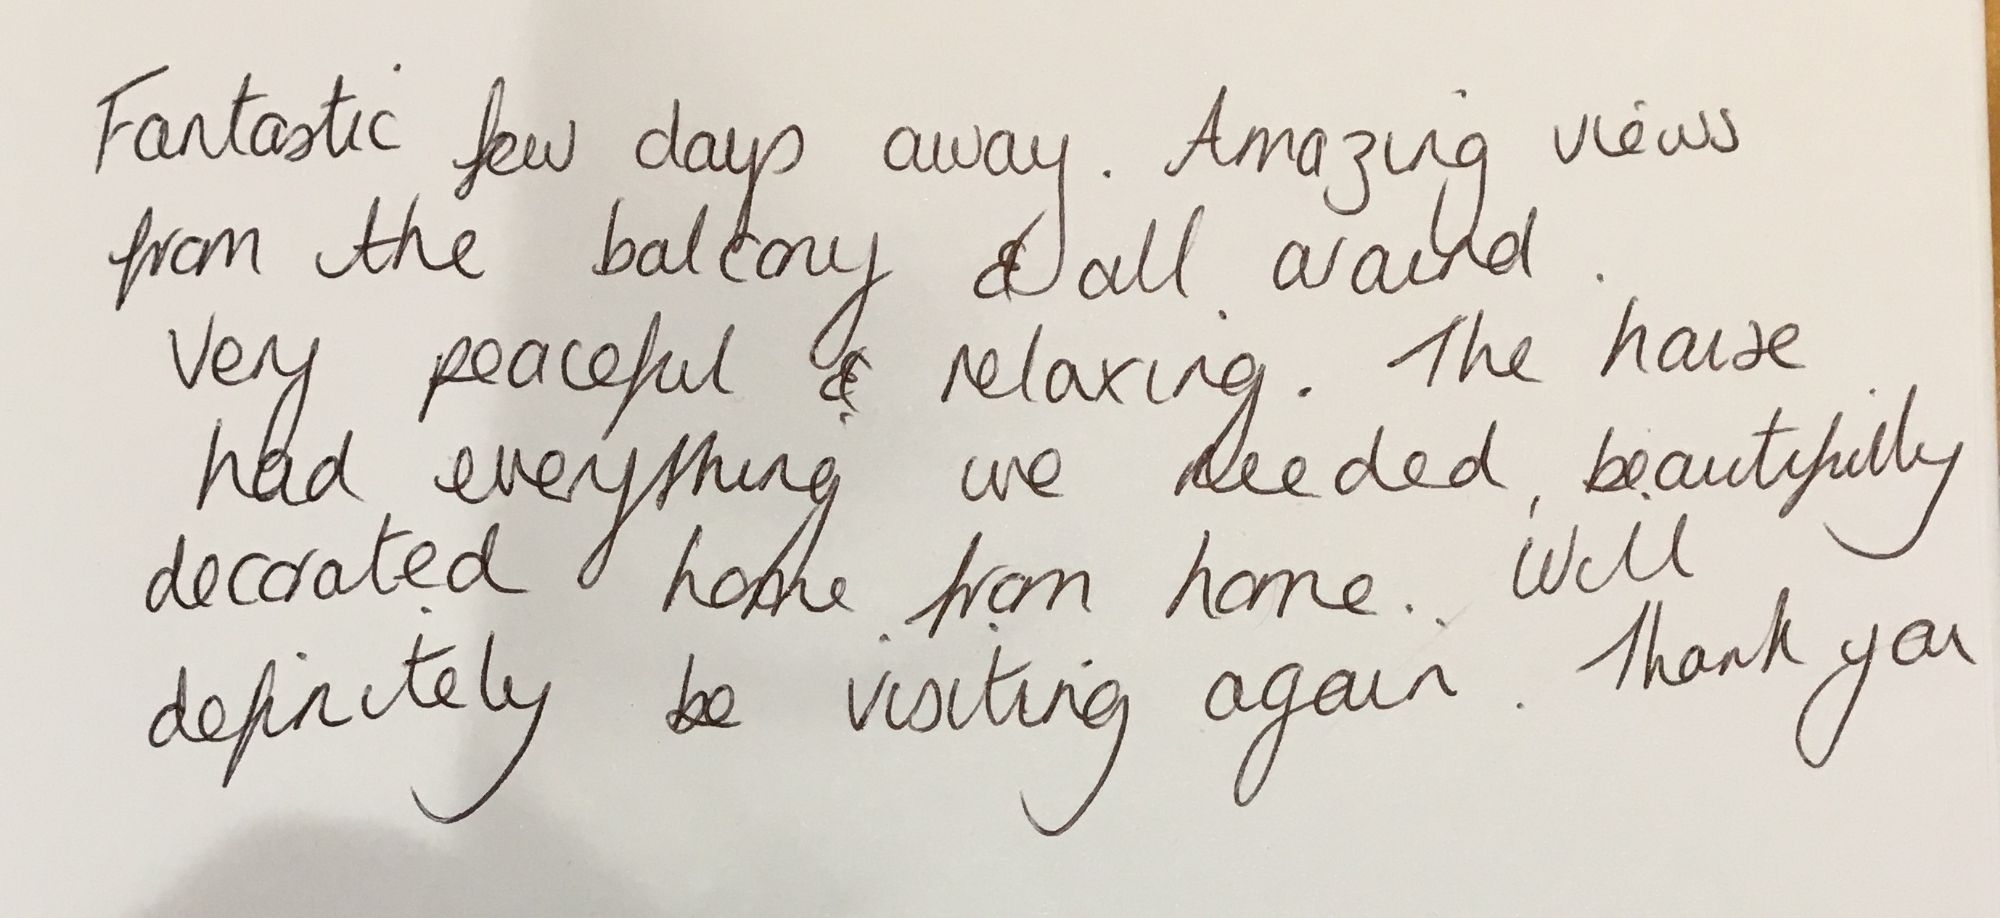 Fantastic few days away. Amazing views
from the balcony & all around.
Very peaceful & relaxing. The house
had everything we needed, beautifully
decorated home from home. Will
definitely be visiting again. Thank you